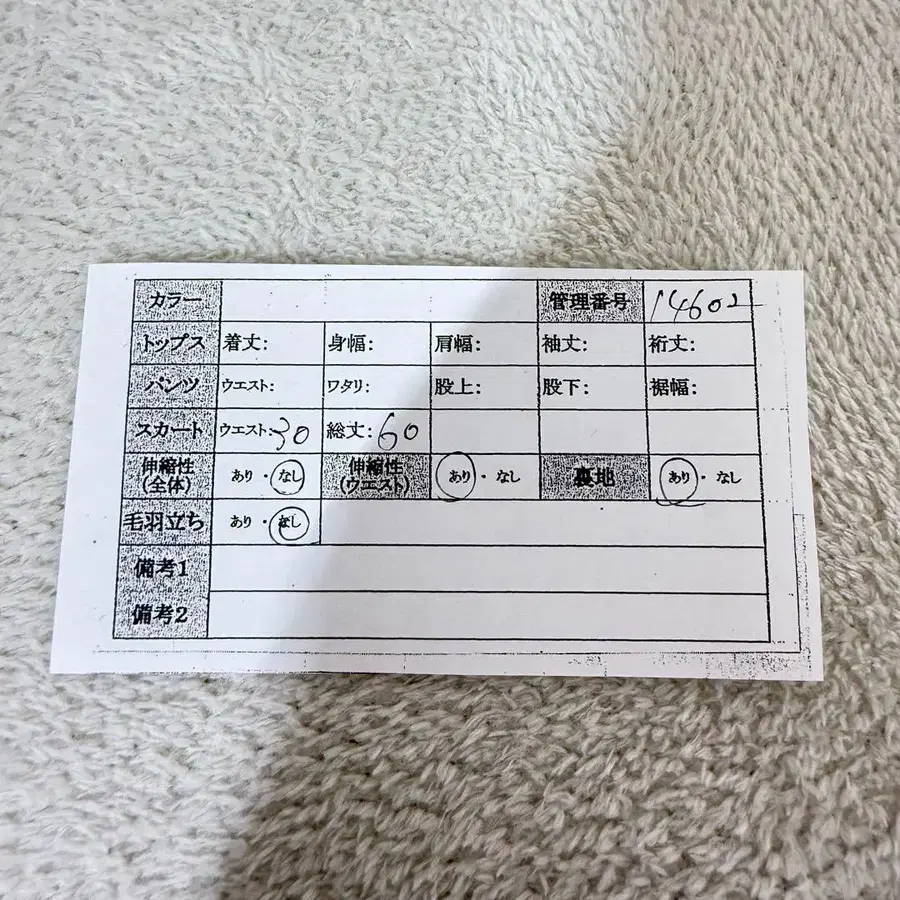 カラー 管理番号 14602
トップス 着丈: 身幅: 肩幅: 袖丈: 裄丈:
パンツ ウエスト: ワタリ: 股上: 股下: 裾幅:
スカート ウエスト:30 総丈:60
伸縮性(全体) あり・なし 伸縮性(ウエスト) あり・なし 裏地 あり・なし
毛羽立ち あり・なし
備考1
備考2